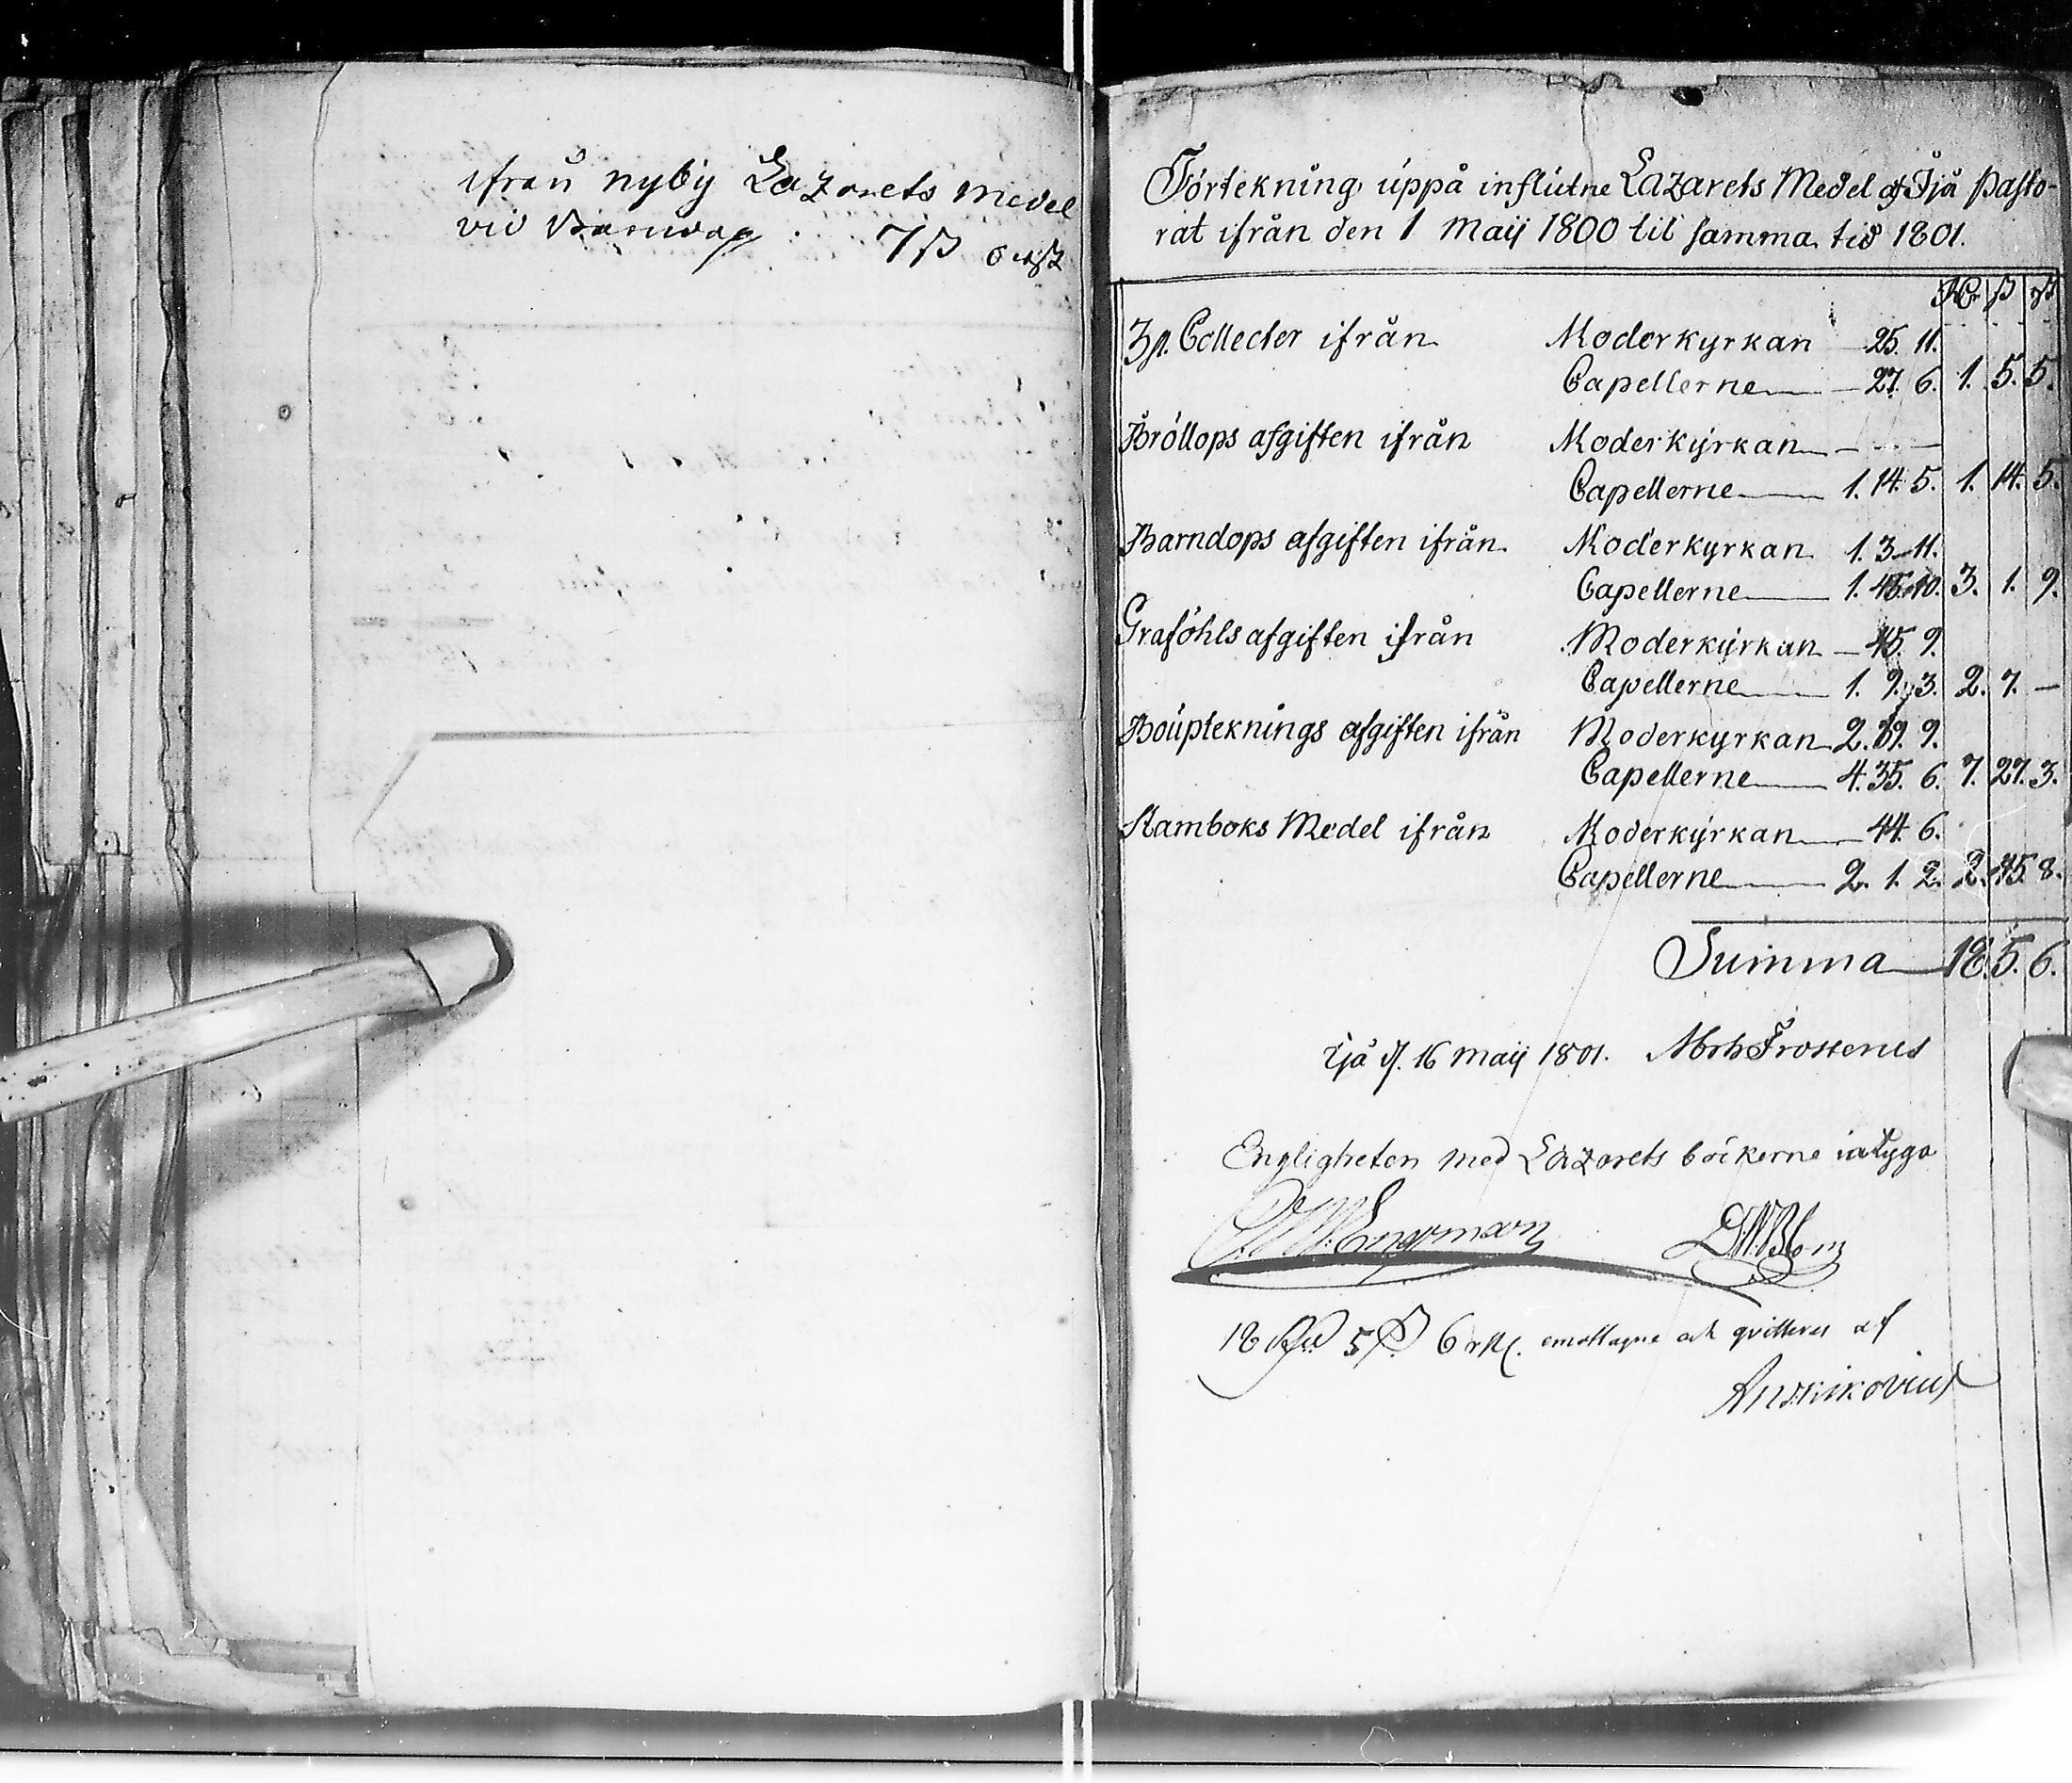 ifrån nyby Lazarets medel
vid Barndop 7 ß 6 rst
Förtekning uppå influtne Lazarets Medel af Ijå Pasto-
rat ifrån den 1 Maij 1800 til samma tid 1801.
Rdr ß rst
3 st. Collecter ifrån Moderkyrkan 25. 11.
Capellerne 27. 6. 1. 5. 5.
Bröllops afgiften ifrån Moderkyrkan — — —
Capellerne 1. 14. 5. 1. 14. 5.
Barndops afgiften ifrån Moderkyrkan 1. 3. 11.
Capellerne 1. 45. 10. 3. 1. 9.
Graföhls afgiften ifrån Moderkyrkan 45. 9.
Capellerne 1. 9. 3. 2. 7. —
Boupteknings afgiften ifrån Moderkyrkan 2. 39. 9.
Capellerne 4. 35. 6. 7. 27. 3.
Stamboks Medel ifrån Moderkyrkan 44. 6.
Capellerne 2. 1. 2. 2. 45. 8.
Summa 18. 5. 6.
Ijå d. 16 Maij 1801. Abrh Frosterus
Engligheten med Lazarets böckerne intyga
Engman Blom
18 Rdr 5 ß 6 rst. emottagne och qvitteras af